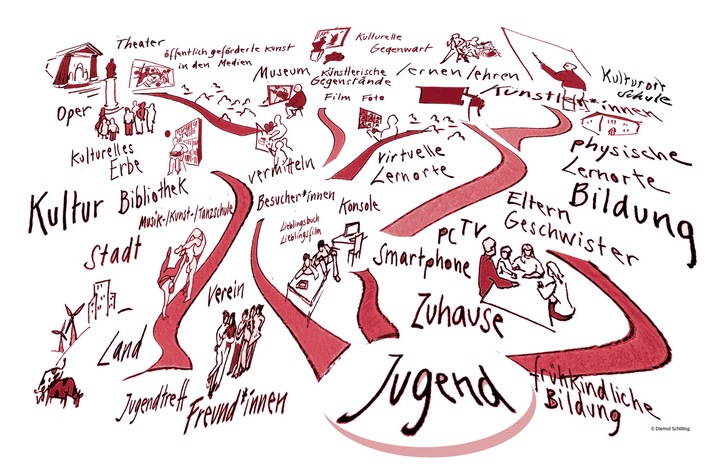 Theater
öffentlich geförderte Kunst
in den Medien
Kulturelle
Gegenwart
Museum
Künstlerische
Gegenstände
lernen/lehren
Kulturort
Schule
Künstler*innen
Film Foto
Oper
Kulturelles
Erbe
vermitteln
virtuelle
Lernorte
physische
Lernorte
Bildung
Kultur
Bibliothek
Musik-/Kunst-/Tanzschule
Besucher*innen
Lieblingsbuch
Lieblingsfilm
Konsole
PC TV
Smartphone
Eltern
Geschwister
Stadt
Verein
Zuhause
Land
Jugendtreff
Freund*innen
Jugend
frühkindliche
Bildung
© Diemut Schilling